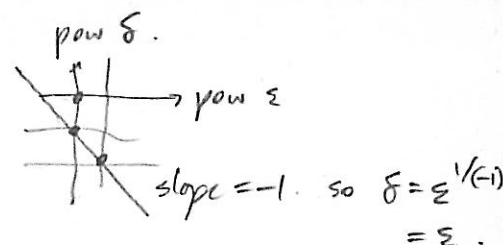 pow δ.
→ pow ε
slope = -1. so δ = ε^1/(-1)
= ε.